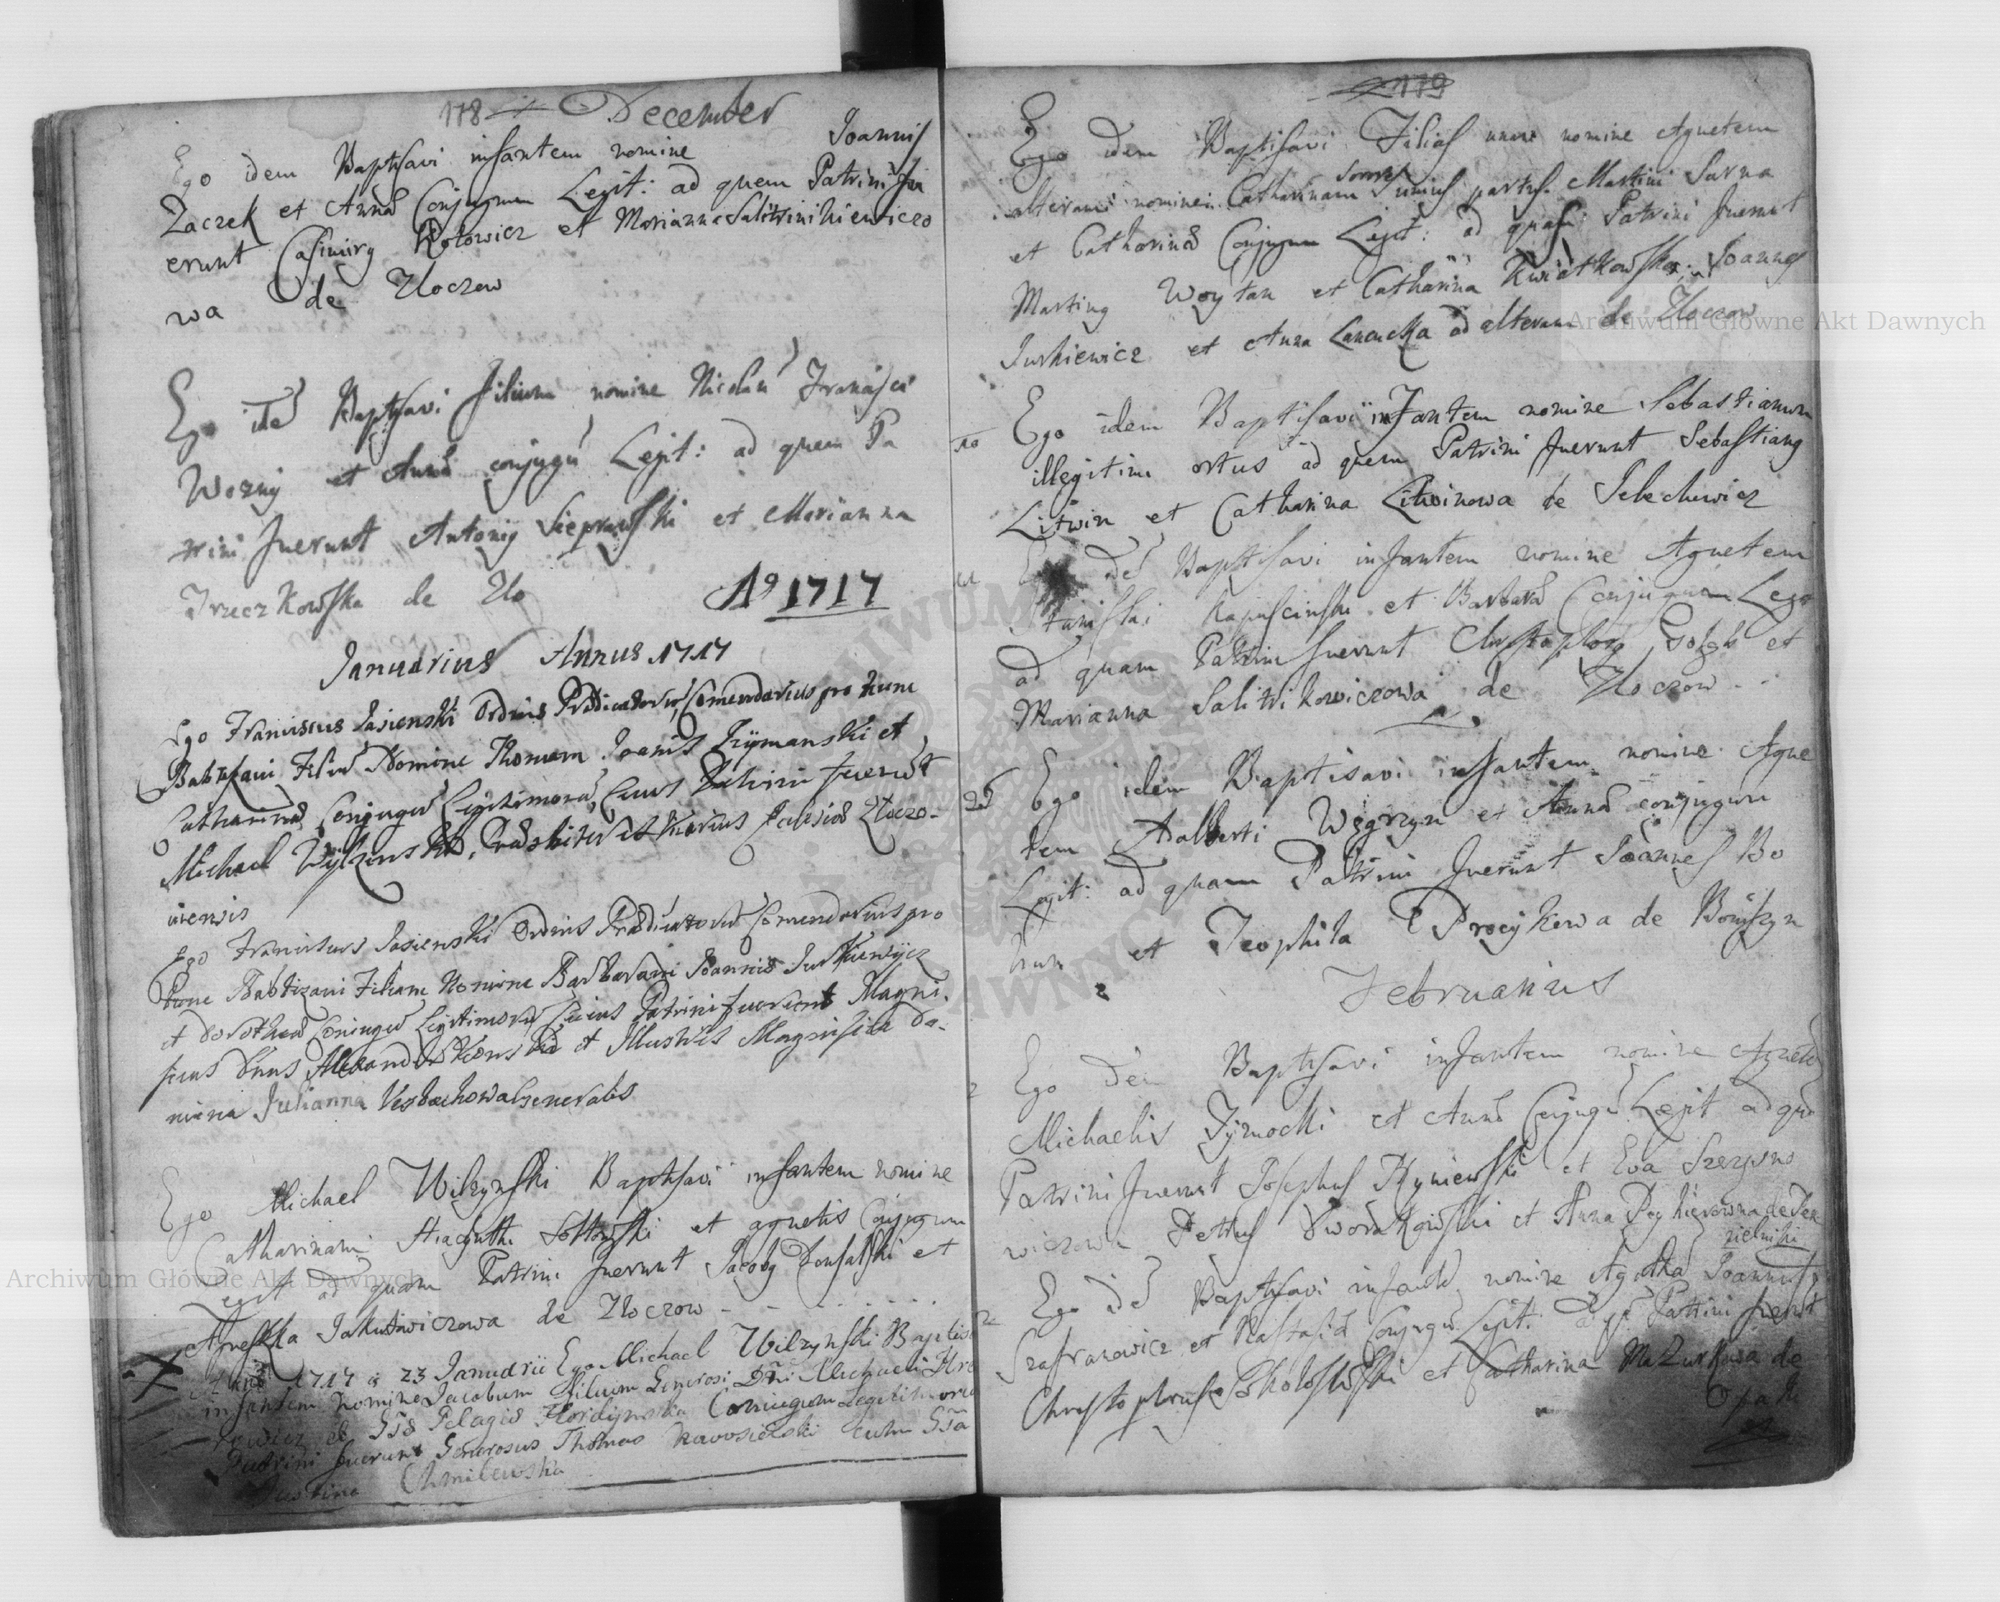 178 December
Ego idem Baptisavi infantem nomine Joannis
Zaczek et Annæ Conjugum Legit: ad quem Patrini fu
erunt Casimirg Kotowicz et Marianna
wa de Zloczow
Ego idē Baptisavi filium nomine Nicolaū
Wozny et Annæ conjugū Legit: ad quem Pa
trini fuerunt Antonig Sieprawski et Marianna
Trzeczkowska de Zlo
Ao 1717
Januarius Annus 1717
Ego Franciscus Jasienski Ordinis Prædicatorū Comendarius pro tunc
Babtizavi Filiū Nomine Thomam Joanis Szymanski et
Catharinæ Conjugū Legitimorū, Cuius Patrini fuerūt
Michael Wylzinski, et Ecclesiæ Zloczo-
viensis
Ego Franciscus Jasienski Ordinis Prædicatorū Comendarius pro
tunc Babtizavi Filiam Nomine Barbaram Joannis Jurkiewijcz
et Dorotheæ Coniugū Legitimorū Cuius Patrini fuerunt Magni-
ficus Dnus et Illustris Magnifica Do-
mina Julianna Generalis
Ego Michael Wilzynski Baptisavi infantem nomine
Catharinam Hiacynthi Soltowski et Agnetis Conjugum
Legit ad quam Patrini fuerunt Jacobg et
Agneszka Jakubowiczowa de Zloczow - - - - - -
Anno 1717 23 Januarii Ego Michael Wilzynski Baptisa
infantem nomine Jacobum filium Generosi Dni Michaeli
et Gsæ Pelagiæ Hordijnska Coniugum Legitimorū
Patrini fuerunt Generosus Thomas cum Gsa
Justina Chmilewska
179
Ego idem Baptisavi Filias unam nomine Agnetem
alteram nomine Catharinam Sorores unius partus Martini Sarna
et Catharinæ Conjugum Legit: ad quas Patrini fuerunt
Marting Woytan et Catharina Kwiatkowska, Joannes
Jurkiewicz et Anna Lancucka ad alteram de Zloczow
10 Ego idem Baptisavi infantem nomine Sebastianum
illegitimi ortus ad quem Patrini fuerunt Sebastiang
Litwin et Catharina Litwinowa de Jelechowicz
idē Baptisavi infantem nomine Agnetem
Stanislai Kapuscinski et Barbaræ Conjugum Leg
ad quam Patrini fuerunt Christophorg Golab et
Marianna Salitrikowiczowa de Zloczow - -
Ego idem Baptisavi infantem nomine Agne
tem Adalberti Węgrzyn et Annæ conjugum
Legit: ad quam Patrini fuerunt Joannes Bo
hun et Teophila Procykowa de Boniszyn
Februarius
2 Ego idem Baptisavi infantem nomine Agnetē
Michaelis Tymocki et Annæ Conjugū Legit ad quā
Patrini fuerunt Josephus et Eva Szczepano
wiczowa Petrus Dworakowski et Anna de
zielniki
Ego idē Baptisavi infantē nomine Agathā Joannis
Szafranowicz et Nastasiæ Conjugū Legit: Patrini fuerūt
Christophrus et Catharina Mazurkowa de
Opaki
Archiwum Główne Akt Dawnych
Archiwum Główne Akt Dawnych